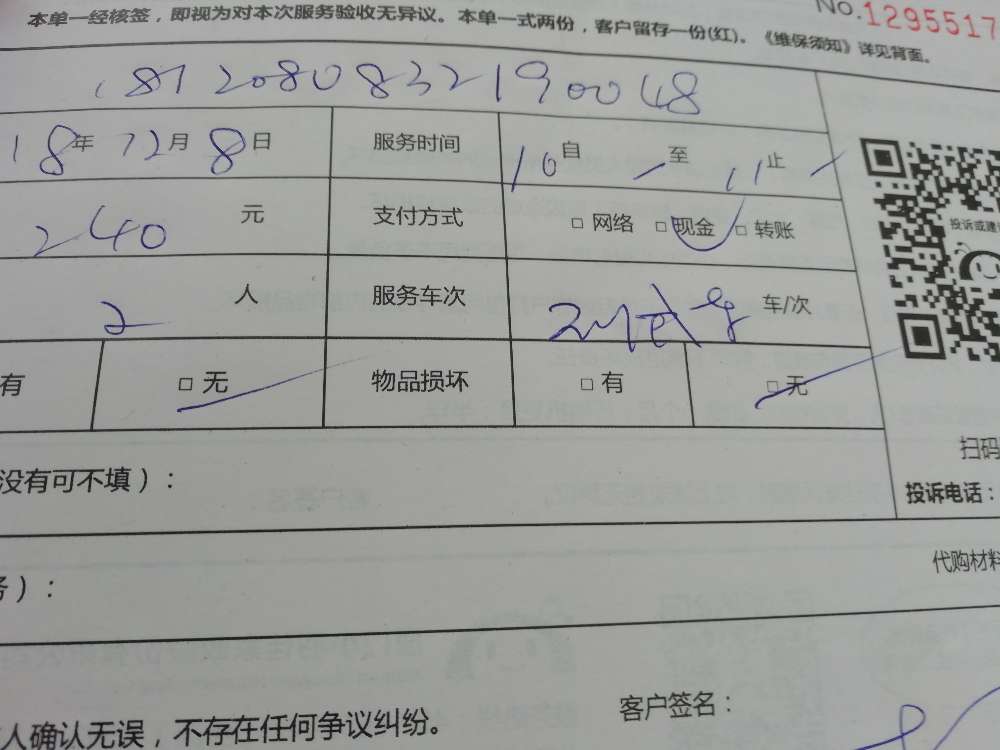 本单一经核签，即视为对本次服务验收无异议。本单一式两份，客户留存一份(红)。《维保须知》详见背面。
No.1295517
1812080832190048
18年 12月 8日 服务时间 10自 至 11止
240 元 支付方式 □ 网络 □ 现金 □ 转账
投诉或建
2 人 服务车次 车/次
有 □ 无 物品损坏 □ 有 □ 无
扫码
没有可不填）：
投诉电话：
代购材料
务）：
客户签名：
人确认无误，不存在任何争议纠纷。